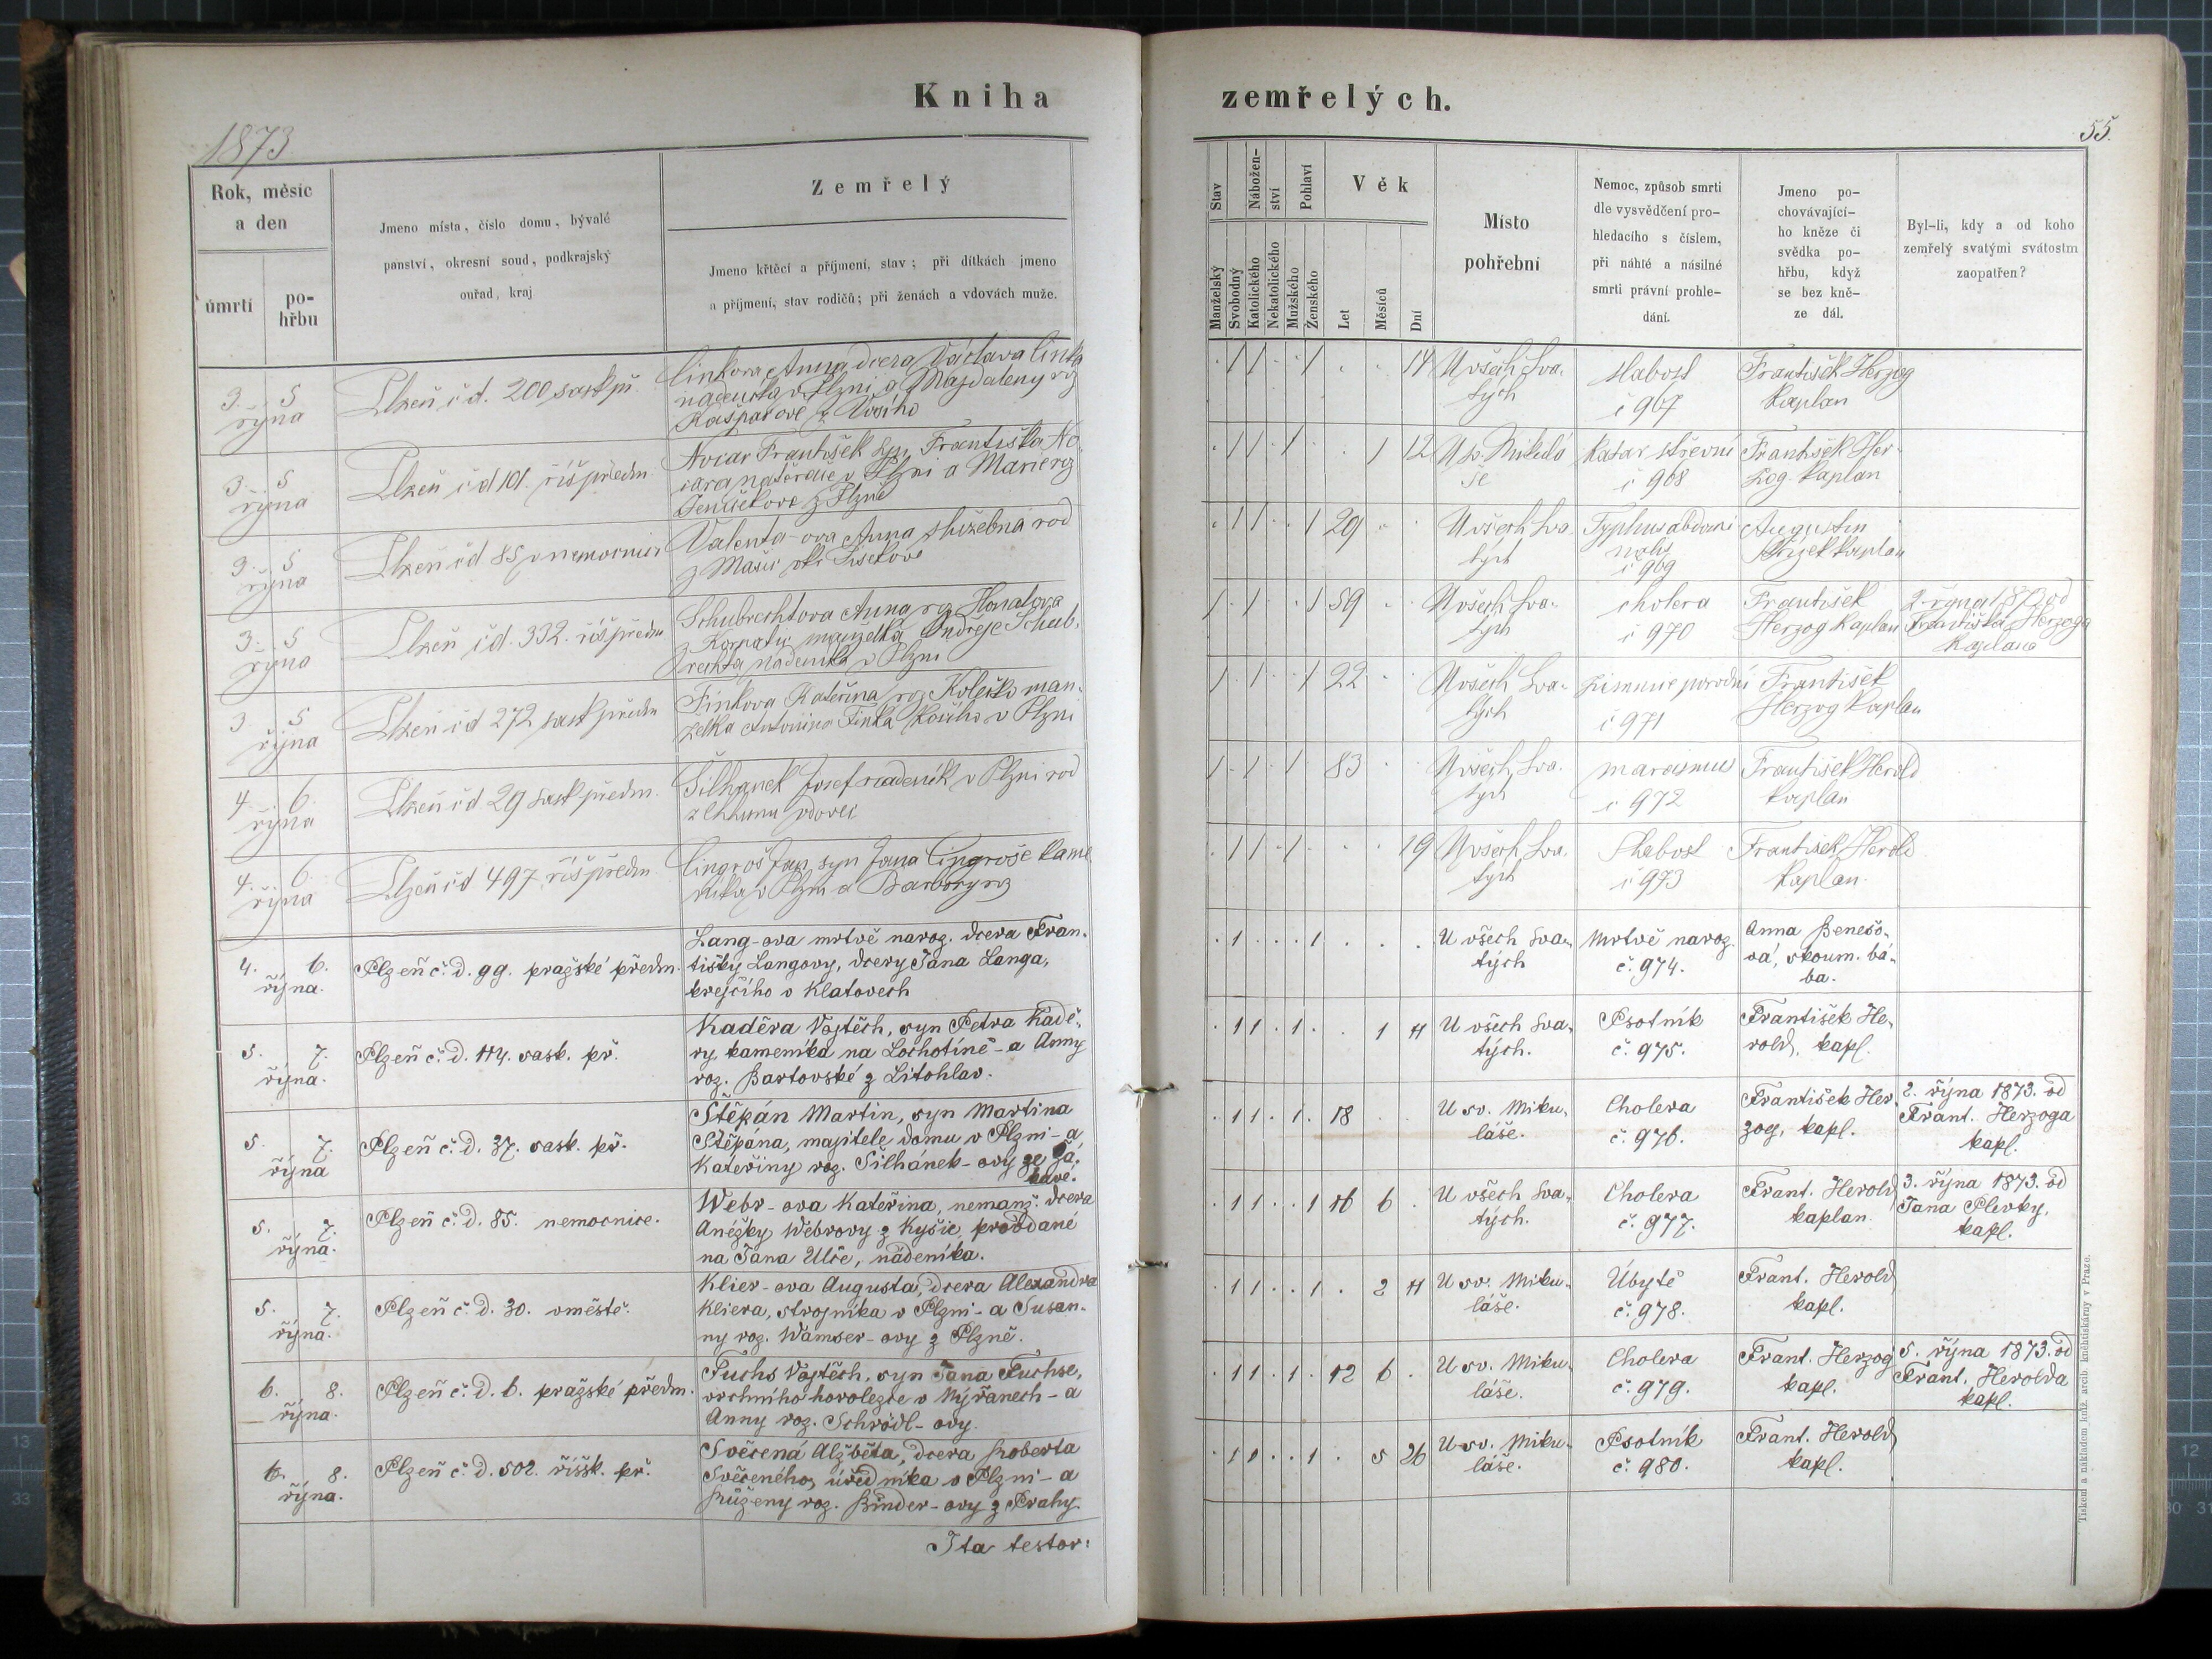 Kniha
zemřelých.
1873
55.
Rok, měsíc
a den
úmrtí
po-
hřbu
Jmeno místa, číslo domu, bývalé
panství, okresní soud, podkrajský
ouřad, kraj
Zemřelý
Jmeno křtěcí a příjmení, stav; při dítkách jmeno
a příjmení, stav rodičů; při ženách a vdovách muže.
Stav
Manželský
Svobodný
Nábožen-
ství
Katolického
Nekatolického
Pohlaví
Mužského
Ženského
Věk
Let
Měsíců
Dní
Místo
pohřební
Nemoc, způsob smrti
dle vysvědčení pro-
hledacího s číslem,
při náhlé a násilné
smrti právní prohle-
dání.
Jmeno po-
chovávající-
ho kněze či
svědka po-
hřbu, když
se bez kně-
ze dál.
Byl-li, kdy a od koho
zemřelý svatými svátostm
zaopatřen?
3. 5
října
Plzeň č d. 200 sask př.
Anna dcera Václava
nádeníka v Plzni a Magdaleny roz
Kašparove z
1 1 1 14
U všech Sva-
tých
slabost
č 967
František Herzog
kaplan
3. 5
října
Plzeň č d 101. říš předm
Nocar František syn Františka No-
cara v Plzni a Marie roz
z Plzně
1 1 1 1 12
U sv. Mikulá
še
Katar střevní
č 968
František Her-
zog kaplan
3. 5
října
Plzeň č d 85 v nemocnici
Valenta-ova Anna služebná rod
z
1 1 1 29
U všech Sva
tých
Typhus abdomi
nalis
č 969
Augustin
kaplan
3. 5
října
Plzeň č d. 332. říš předm
Schubrechtova Anna roz
z manželka Ondřeje Schub-
rechta nádeníka v Plzni
1 1 1 59
U všech Sva-
tých
cholera
č 970
František
Herzog kaplan
2. října 1873 od
Františka Herzoga
kaplana
3 5
října
Plzeň č d 272 sask předm
Finkova Kateřina roz man-
želka Antonina Finka v Plzni
1 1 1 22
U všech Sva-
tých
č 971
František
Herzog kaplan
4. 6.
října
Plzeň č d 29 sask předm.
Šilhanek Josef nadeník v Plzni rod
z Chlumu vdovec
1 1 1 83
U všech Sva.
tých
marasmus
č 972
František Herold
kaplan
4. 6.
října
Plzeň č d 497 říš předm.
Cingroš Jan, syn Jana Cingroše kame
níka v Plzni a Barbory roz
1 1 1 19
U všech Sva.
tých
Slabost
č 973
František Herold
kaplan.
4. 6.
října.
Plzeň č. d. 99. pražské předm.
Lang-ova mrtvě naroz. dcera Fran-
tišky Langovy, dcery Jana Langa,
krejčího v Klatovech
1 1
U všech Sva-
tých
Mrtvě naroz.
č. 974.
Anna Benešo-
vá, zkoum. bá-
ba.
5. 7.
října.
Plzeň č. d. 114. sask. př.
Kaděra Vojtěch, syn Petra Kadě-
ry kameníka na Lochotíně - a Anny
roz. Bartovské z Litohlav.
1 1 1 1 11
U všech Sva-
tých.
Psotník
č. 975.
František He-
rold, kapl.
5. 7.
října
Plzeň č. d. 37. sask. př.
Štěpán Martin, syn Martina
Štěpána, majitele domu v Plzni - a
Kateřiny roz. Silhánek-ovy ze Zá-
kavé.
1 1 1. 18
U sv. Miku-
láše.
Cholera
č. 976.
František Her-
zog, kapl.
2. října 1873. od
Frant. Herzoga
kapl.
5. 7.
října.
Plzeň č. d. 85. nemocnice.
Webr-ova Kateřina, nemanž. dcera
Anéžky Webrovy z Kyšic, provdané
na Jana Ulče, nádeníka.
1 1 1 16 6
U všech Sva-
tých.
Cholera
č. 977.
Frant. Herold
kaplan
3. října 1873. od
Jana Plevky,
kapl.
5. 7.
října.
Plzeň č. d. 30. v městě.
Klier-ova Augusta, dcera Alexandra
Kliera, strojníka v Plzni - a Susan-
ny roz. Wamser-ovy z Plzně.
1 1 1 2 11
U sv. Miku-
láše.
Úbytě
č. 978.
Frant. Herold
kapl.
6. 8.
října.
Plzeň č. d. 6. pražské předm.
Fuchs Vojtěch, syn Jana Fuchse,
vrchního horolezce v Nýřanech - a
Anny roz. Schrödl-ovy.
1 1 1. 12 6
U sv. Miku-
láše.
Cholera
č. 979.
Frant. Herzog
kapl.
5. října 1873. od
Frant. Herolda
kapl.
6. 8.
října.
Plzeň č. d. 502. říšsk. př.
Svěcená Alžběta, dcera Roberta
Svěceného, úředníka v Plzni - a
Růženy roz. Binder-ovy z Prahy.
1 1 1 5 26
U sv. Miku-
láše.
Psotník
č. 980.
Frant. Herold
kapl.
Ita testor:
Tiskem a nákladem kníž. arcib. knihtiskárny v Praze.